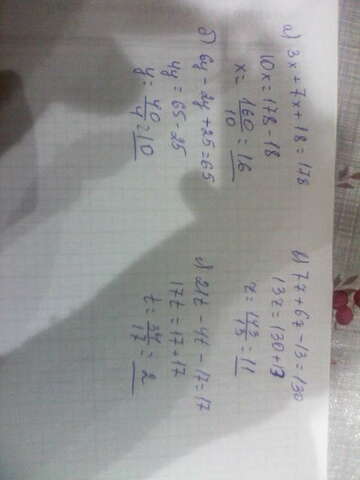 а) 3x + 7x + 18 = 178
10x = 178 - 18
x = 160/10 = 16
б) 6y - 2y + 25 = 65
4y = 65 - 25
y = 40/4 = 10
в) 7z + 6z - 13 = 130
13z = 130 + 13
z = 143/13 = 11
г) 21t - 4t - 17 = 17
17t = 17 + 17
t = 34/17 = 2